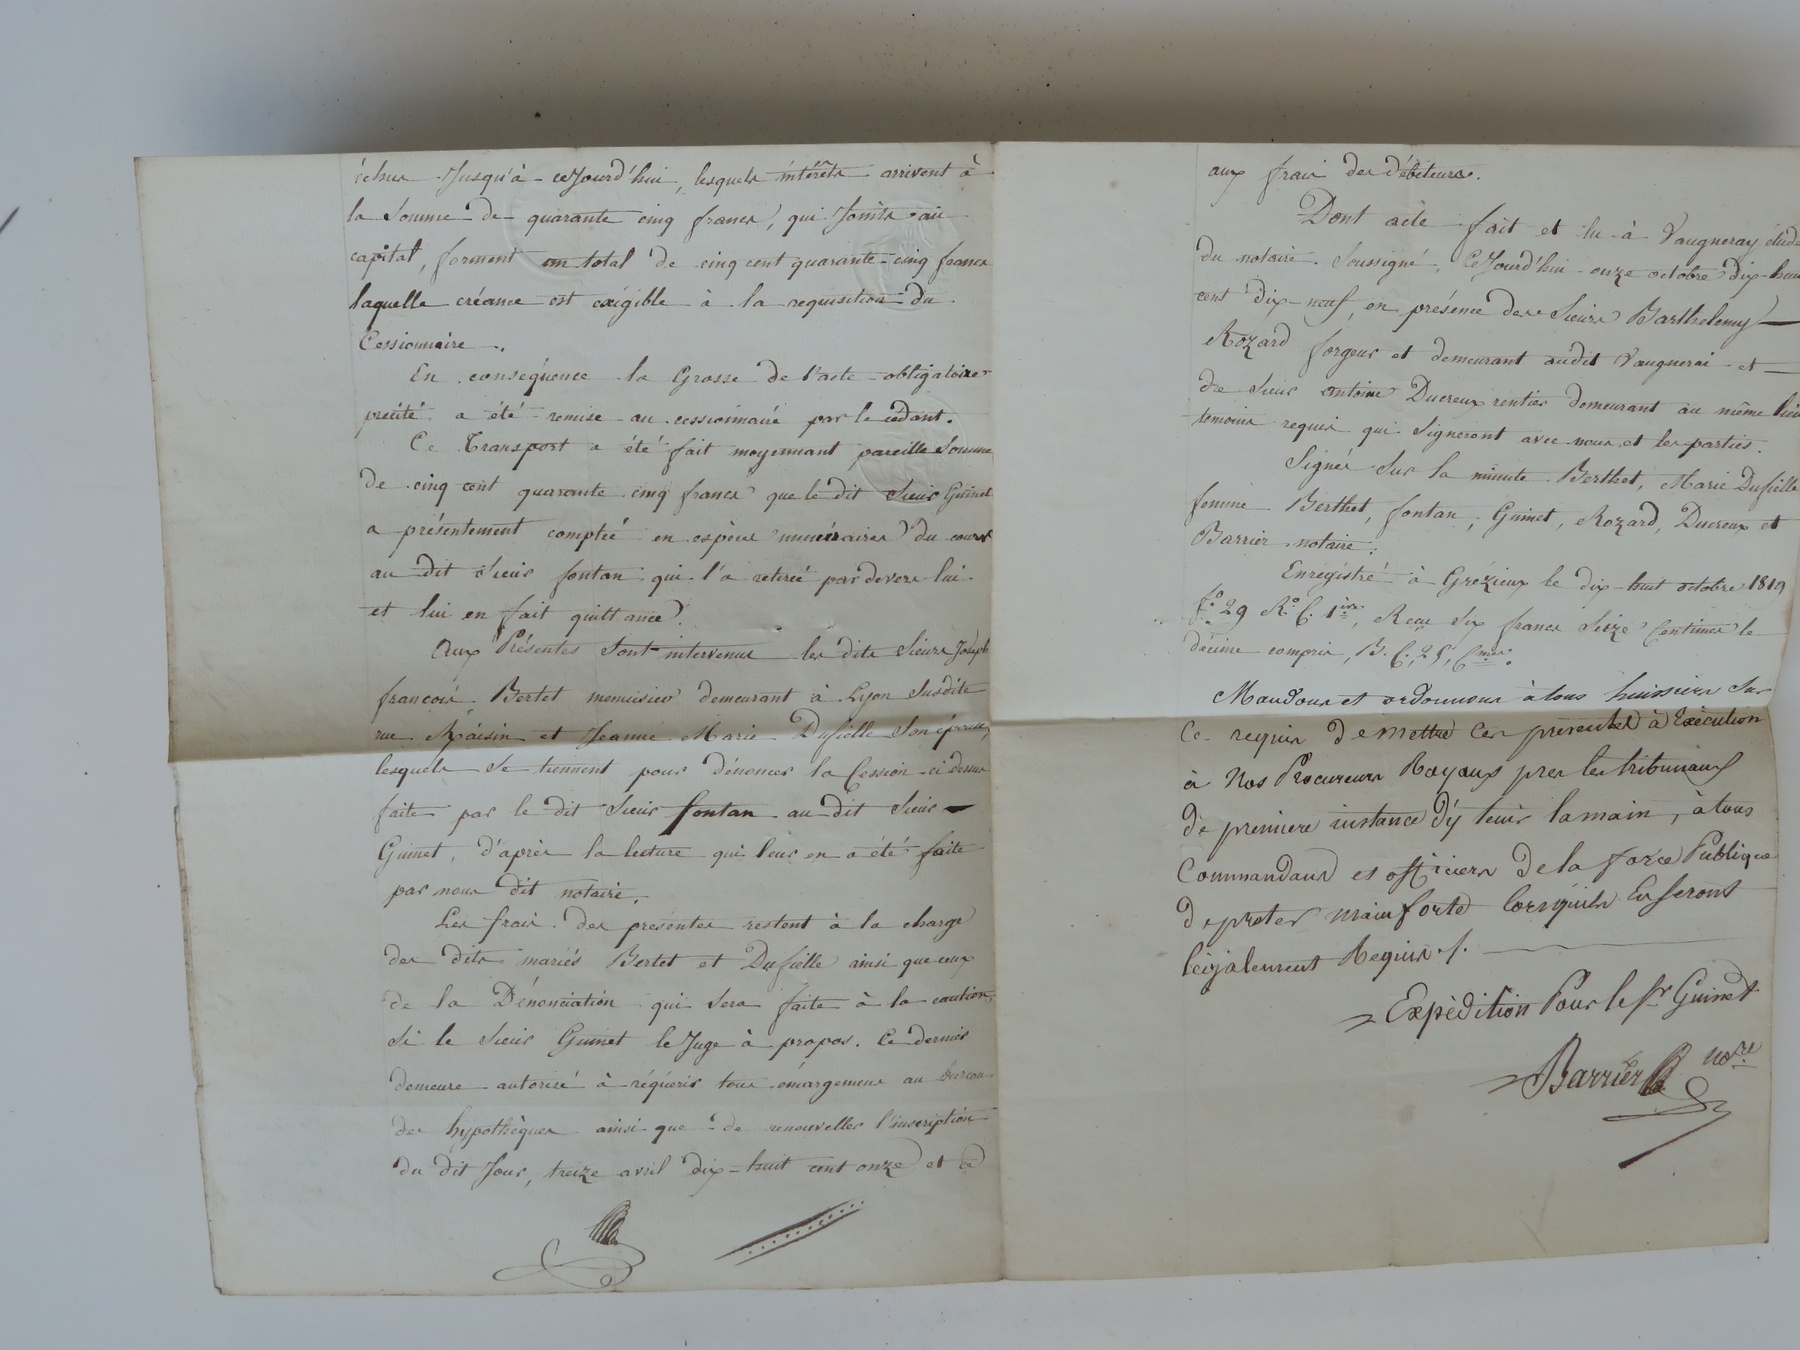 échus Jusqu'à ceJourd'hui, lesquels intérêts arrivent à
la Somme de quarante cinq francs, qui Joints au
capital, forment un total de cinq cent quarante-cinq francs
laquelle créance est exigible à la requisition du
Cessionnaire.
En conséquence la Grosse de l'acte obligatoire
précité a été remise au cessionnaire par le cédant.
Ce Transport a été fait moyennant pareille Somme
de cinq cent quarante cinq francs que le dit Sieur Guinet
a présentement compté en espèces numéraires du cours
au dit Sieur fontan qui l'a retirée pardevers lui
et lui en fait quittance.
Aux Présentes Sont intervenus les dits Sieurs Joseph
francois Bertet menuisier demeurant à Lyon Susdite
rue Raisin et Jeanne Marie Dufielle Son épouse,
lesquels se tiennent pour dénoncer la Cession ci dessus
faite par le dit Sieur fontan au dit Sieur
Guinet, d'après la lecture qui leur en a été faite
par nous dit notaire.
Les frais des presentes restent à la charge
des dits mariés Bertet et Dufielle ainsi que ceux
de la Dénonciation qui Sera faite à la caution,
Si le Sieur Guinet le Juge à propos. Ce dernier
demeure autorisé à réquérir tous émargemens au Bureau
des hypothèques ainsi que de renouveller l'inscription
du dit Jour, treize avril dix-huit cent onze et ce
aux frais des débiteurs.
Dont acte fait et lu à Vaugneray étude
du notaire Soussigné, CeJourd'hui onze octobre dix-huit
cent dix-neuf, en présence des Sieurs Barthelemy
Rozard forgeur et demeurant audit Vaugnerai et
de Sieur antoine Ducreux rentier demeurant au même lieu
temoins requis qui Signeront avec nous et les parties.
Signés Sur la minute Berthet, Marie Dufielle
femme Berthet, fontan, Guinet, Rozard, Ducreux et
Barrier notaire.
Enregistré à Grézieux le dix-huit octobre 1819
f.° 29 R.° C. 1ère, Reçu Six francs Seize Centimes le
décime compris, B. C. 25, Cmes.
Mandons et ordonnons à tous huissiers Sur
Ce requis de mettre Ces présentes à Exécution
à Nos Procureurs Royaux pres les tribunaux
de premiere instance d'y tenir la main, à tous
Commandans et officiers de la force Publique
de preter main forte lorsquils En Seront
légalement Requis ./.
Expédition Pour le Sr Guinet
Barrier nore